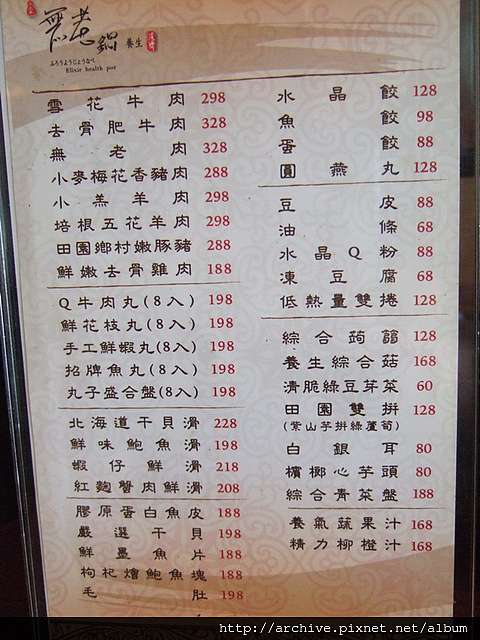 無老鍋 養生
ふろうようじょうなべ
Elixir health pot
雪花牛肉 298
去骨肥牛肉 328
無老肉 328
小麥梅花香豬肉 288
小羔羊肉 298
培根五花羊肉 298
田園鄉村嫩豚豬 288
鮮嫩去骨雞肉 188
Q牛肉丸(8入) 198
鮮花枝丸(8入) 198
手工鮮蝦丸(8入) 198
招牌魚丸(8入) 198
丸子盛合盤(8入) 198
北海道干貝滑 228
鮮味鮑魚滑 198
蝦仔鮮滑 218
紅麴蟹肉鮮滑 208
膠原蛋白魚皮 188
嚴選干貝 198
鮮墨魚片 188
枸杞燴鮑魚塊 188
毛肚 198
水晶餃 128
魚餃 98
蛋餃 88
圓燕丸 128
豆皮 88
油條 68
水晶Q粉 88
凍豆腐 68
低熱量雙捲 128
綜合蒟蒻 128
養生綜合菇 168
清脆綠豆芽菜 60
田園雙拼 128
(紫山芋拼綠蘆筍)
白銀耳 80
檳榔心芋頭 80
綜合青菜盤 188
養氣蔬果汁 168
精力柳橙汁 168
http://archive.pixnet.net/album